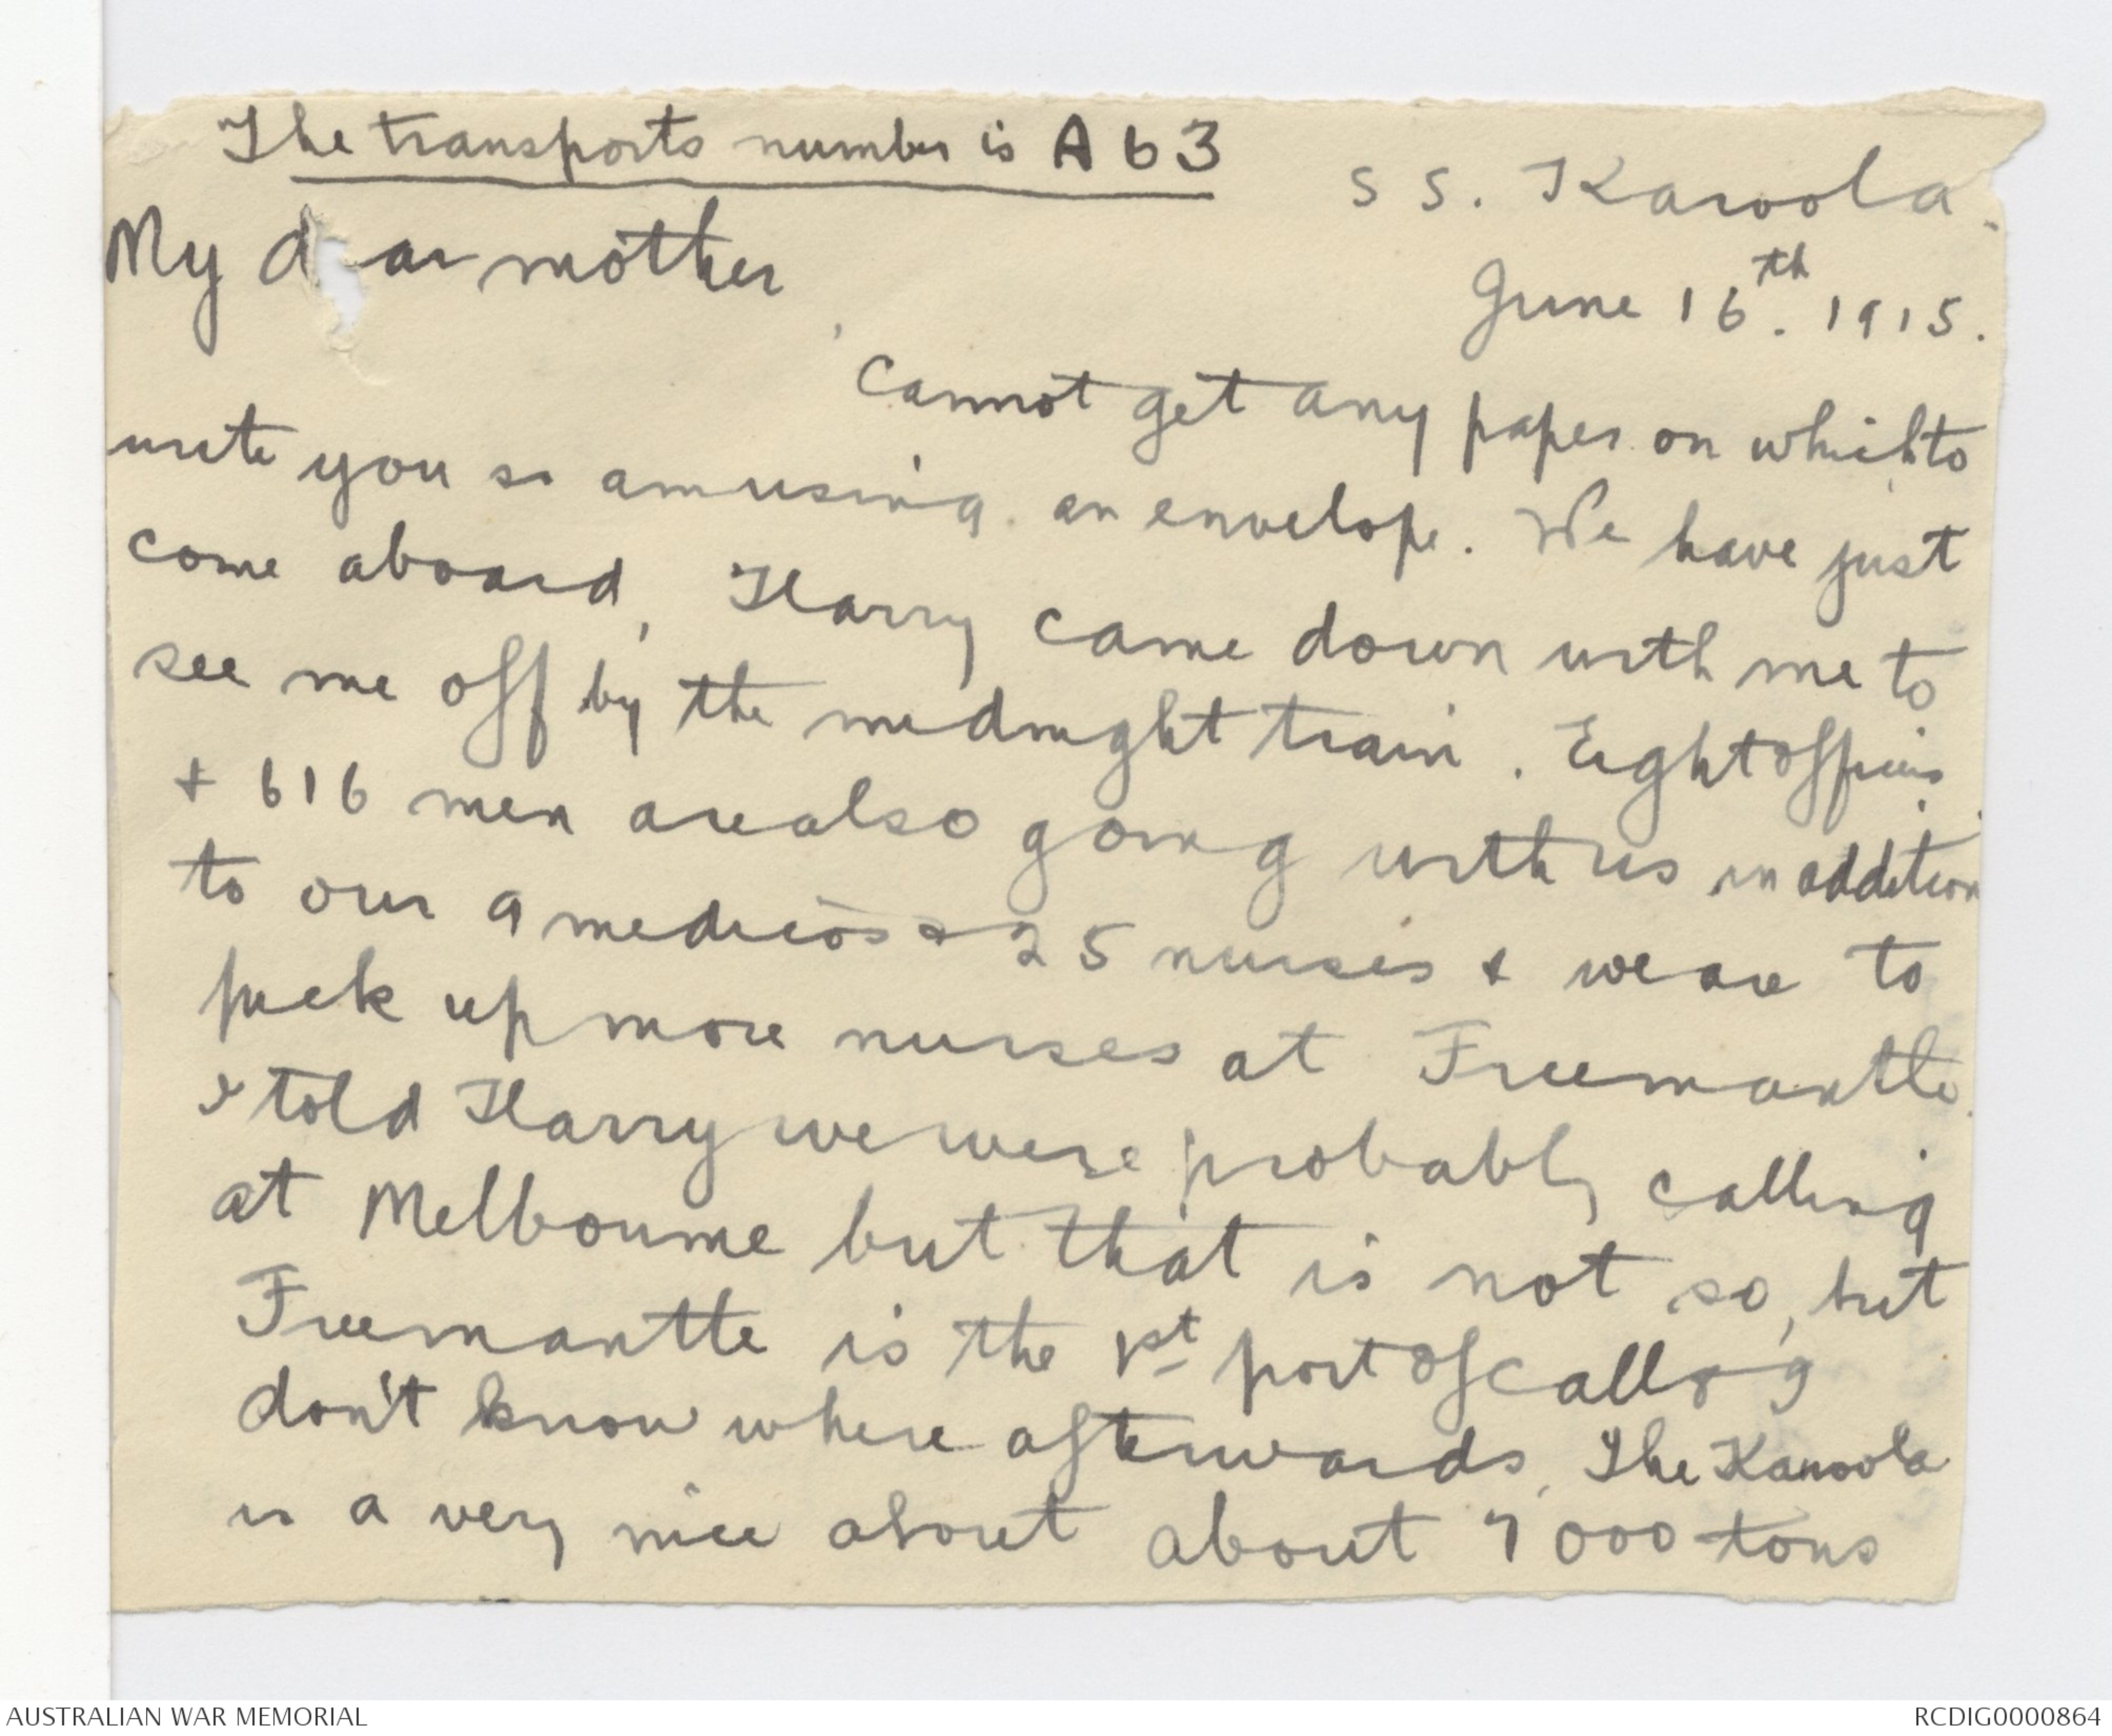 The transports number is A63
SS. Karoola.
June 16th. 1915.
My dear mother,
Cannot get any paper on which to
write you so am using an envelope. We have just
come aboard, Harry came down with me to
see me off by the midnight train. Eight officers
+ 616 men are also going with us in addition
to our 9 medicos + 25 nurses + we are to
pick up more nurses at Freemantle.
I told Harry we were probably calling
at Melbourne but that is not so, but
Freemantle is the 1st port of call & I
don't know where afterwards. The Karoola
is a very nice about about 7000 tons
AUSTRALIAN WAR MEMORIAL
RCDIG0000864